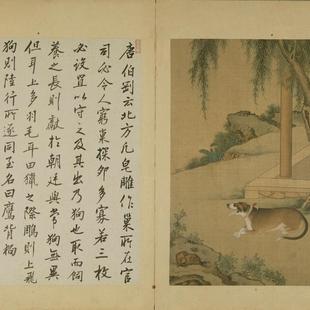 唐伯劉云北方凡皂雕作巢所在官
司必令人窮巢探卵多寡若三枚
必設置以守之及其出乃狗也取而飼
養之長則獻於朝廷與常狗無異
但耳上多羽毛耳田獵之際鵰則上飛
狗則陸行所逐同至名曰鷹背狗